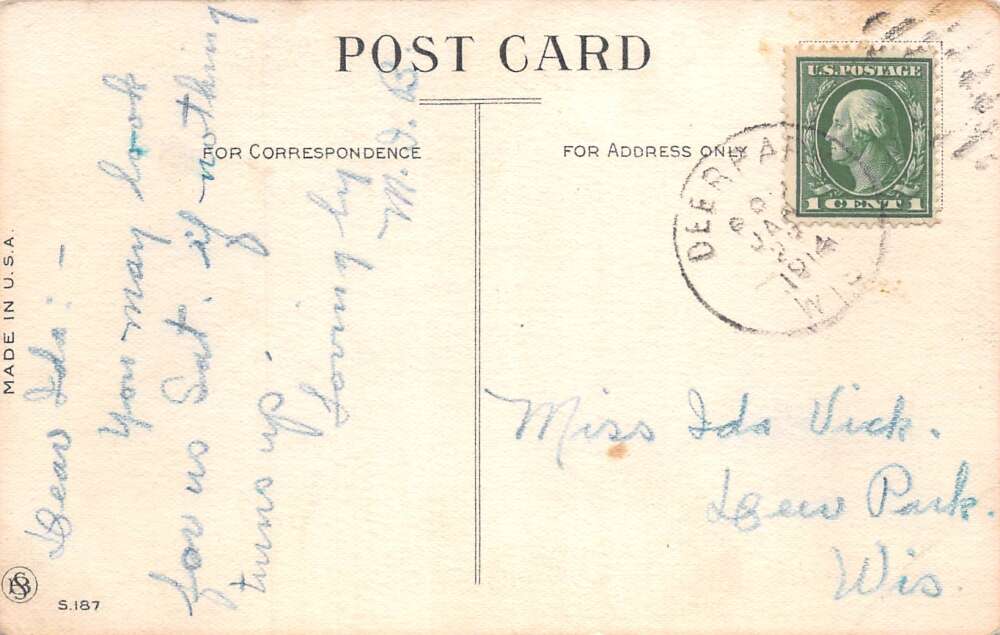 POST CARD
FOR CORRESPONDENCE
FOR ADDRESS ONLY
MADE IN U.S.A.
S.187
U.S. POSTAGE
1 CENT 1
DEER PARK
JAN
1914
WIS
Dear Ida:-
you may look
for us Sat. if nothing
turns up.
Loving ly
M. D. B.
Miss Ida Vick.
Deer Park.
Wis.